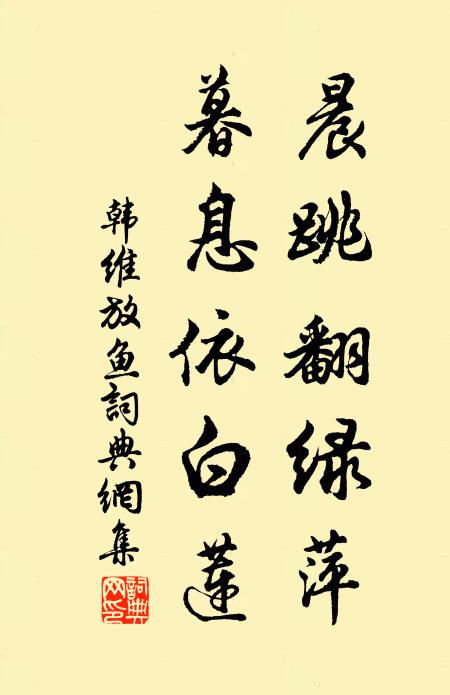 晨跳翻绿萍
暮息依白蓮
韩维放鱼詞典網集
詞典网印